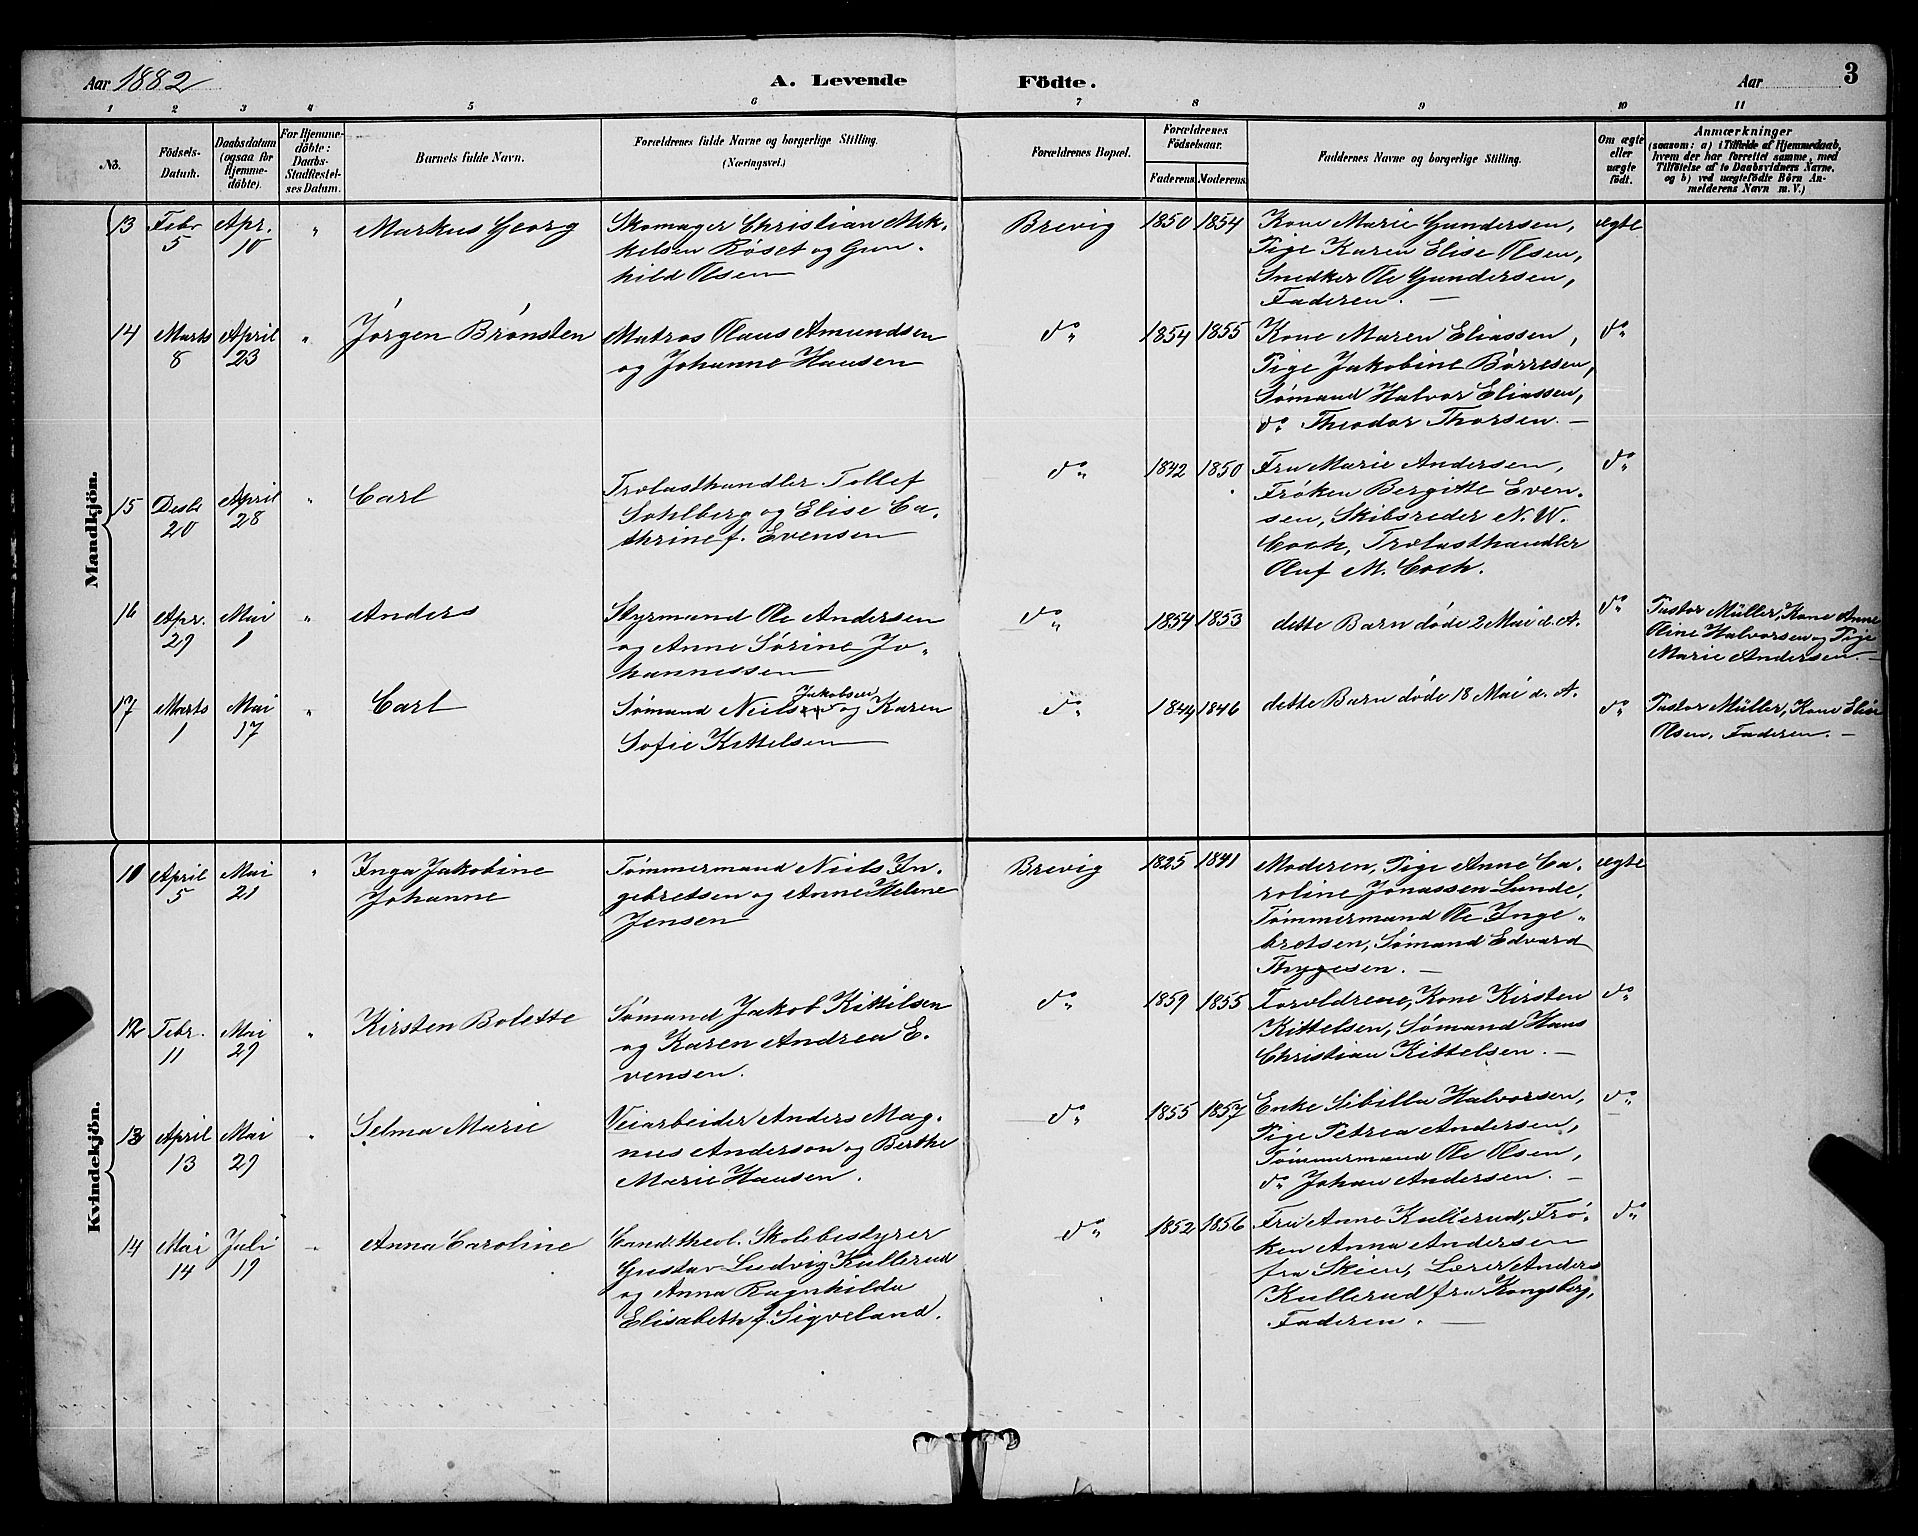 Aar 1882
A. Levende Födte.
Aar
3
1 2 3 4 5 6 7 8 9 10 11
No.
Födsels-
Datum.
Daabsdatum
(ogsaa for
Hjemme-
döbte).
For Hjemme-
döbte:
Daabs-
Stadfæstel-
ses Datum.
Barnets fulde Navn.
Forældrenes fulde Navne og borgerlige Stilling.
(Næringsvei.)
Forældrenes Bopæl.
Forældrenes
Födselsaar.
Faderens. Moderens.
Faddernes Navne og borgerlige Stilling.
Om ægte
eller
uægte
födt.
Anmærkninger
(saasom: a) i Tilfælde af Hjemmedaab,
hvem der har forrettet samme, med
Tilföielse af to Daabsvidners Navne,
og b) ved uægtefödte Börn An-
melderens Navn m. V.)
Mandkjön.
13
Febr
5
Apr.
10
"
Markus Georg
Skomager Christian Mik-
kelsen Røset og Gun-
hild Olsen
Brevig
1850 1854
Kone Marie Gundersen,
Pige Karen Elise Olsen,
Snedker Ole Gundersen,
Faderen. —
ægte
14
Marts
8
April
23
"
Jørgen Brønsten
Matros Olaus Amundsen
og Johanne Hansen
do
1854 1855
Kone Maren Eliassen,
Pige Jakobine Børresen,
Sømand Halvor Eliassen,
do Theodor Thorsen. —
do
15
Decbr
20
April
28
"
Carl
Trælasthandler Tollef
Sohlberg og Elise Ca-
thrine f. Evensen
do
1842 1850
Fru Marie Andersen,
Frøken Bergitte Even-
sen, Skibsreder N. W.
Coch, Trælasthandler
Oluf M. Coch.
do
16
Apr.
29
Mai
1
"
Anders
Styrmand Ole Andersen
og Anne Sørine Jo-
hannessen
do
1854 1853
dette Barn døde 2 Mai d. A.
do
Pastor Müller, Kone Anne
Oline Halvorsen og Pige
Marie Andersen. —
17
Marts
1
Mai
17
"
Carl
Sømand Niels Jakobsen og Karen
Sofie Kittelsen
do
1844 1846
dette Barn døde 18 Mai d. A.
do
Pastor Müller, Kone Elise
Olsen, Faderen. —
Kvindekjön.
11
April
5
Mai
21
"
Inga Jakobine
Johanne
Tømmermand Niels In-
gebretsen og Anne Helene
Jensen
Brevig
1825 1841
Moderen, Pige Anne Ca-
roline Jonassen Lunde,
Tømmermand Ole Inge-
bretsen, Sømand Edvard
Thygesen. —
ægte
12
Febr.
11
Mai
29
"
Kirsten Bolette
Sømand Jakob Kittilsen
og Karen Andrea E-
vensen.
do
1859 1855
Forældrene, Kone Kirsten
Kittelsen, Sømand Hans
Christian Kittelsen. —
do
13
April
13
Mai
29
"
Selma Marie
Veiarbeider Anders Mag-
nus Anderson og Berthe
Marie Hansen.
do
1855 1857
Enke Sibilla Halvorsen,
Pige Petrea Andersen,
Tømmermand Ole Olsen,
do Johan Andersen. —
do
14
Mai
14
Juli
19
"
Anna Caroline
Cand. theol. Skolebestyrer
Gustav Ludvig Kullerud
og Anna Ragnhilda
Elisabeth f. Sigveland.
do
1852 1856
Fru Anne Kullerud, Frø-
ken Anna Andersen
fra Skien, Lærer Anders
Kullerud fra Kongsberg,
Faderen. —
do